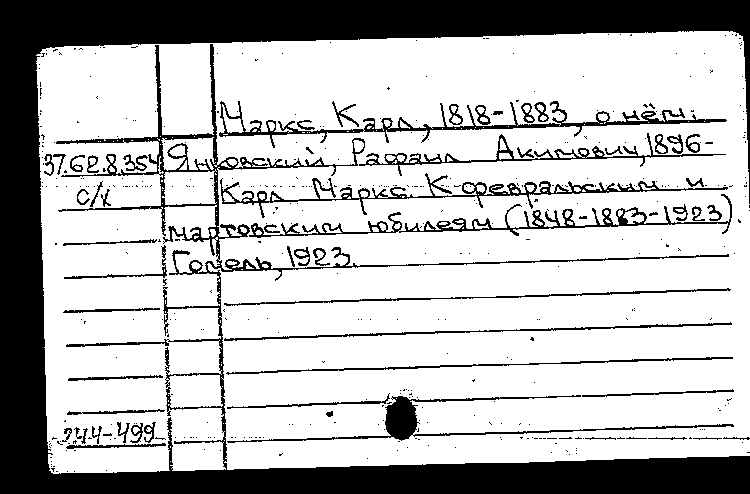 Маркс, Карл, 1818-1883, о нём:
37.62.8.354 Янковский, Рафаил Акимович, 1896-
с/х Карл Маркс. К февральским и
мартовским юбилеям (1848-1883-1923).
Гомель, 1923.
244-499